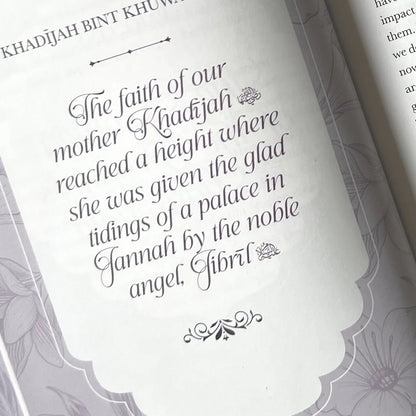 KHADĪJAH BINT KHUWA
The faith of our
mother Khadījah
reached a height where
she was given the glad
tidings of a palace in
Jannah by the noble
angel, Jibrīl
impact
them.
we d
now